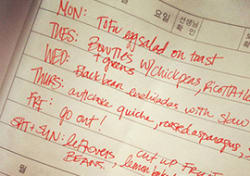 요일
선생님
확인
MON: TOFU egg salad on toast
TUES: Bowties w/chickpeas, Ricotta
+ greens
WED:
THURS: Blackbean enchiladas with slaw
FRI: artichoke quiche, roasted asparagus,
go out!
SAT + SUN: leftovers, cut up Fruit
BEANS, lemon
월